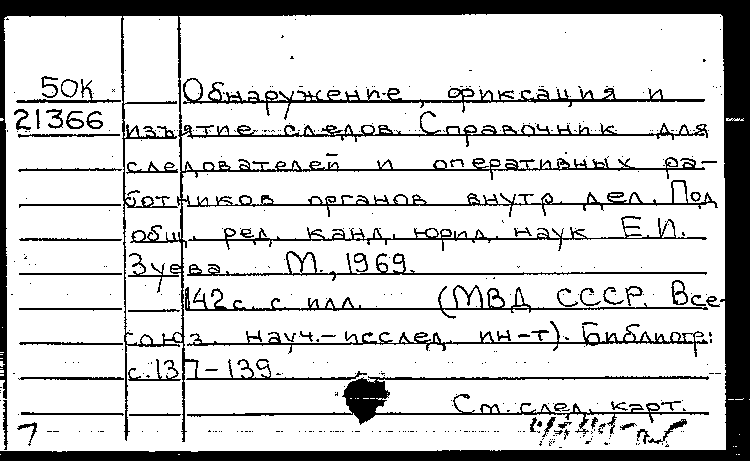 50К Обнаружение, фиксация и
21366 изъятие следов. Справочник для
следователей и оперативных ра-
ботников органов внутр. дел. Под
общ. ред. канд. юрид. наук Е.И.
Зуева. М., 1969.
142 с. с илл. (МВД СССР. Все-
союз. науч.-исслед. ин-т). Библиогр:
с.137-139.
См. след. карт.
7